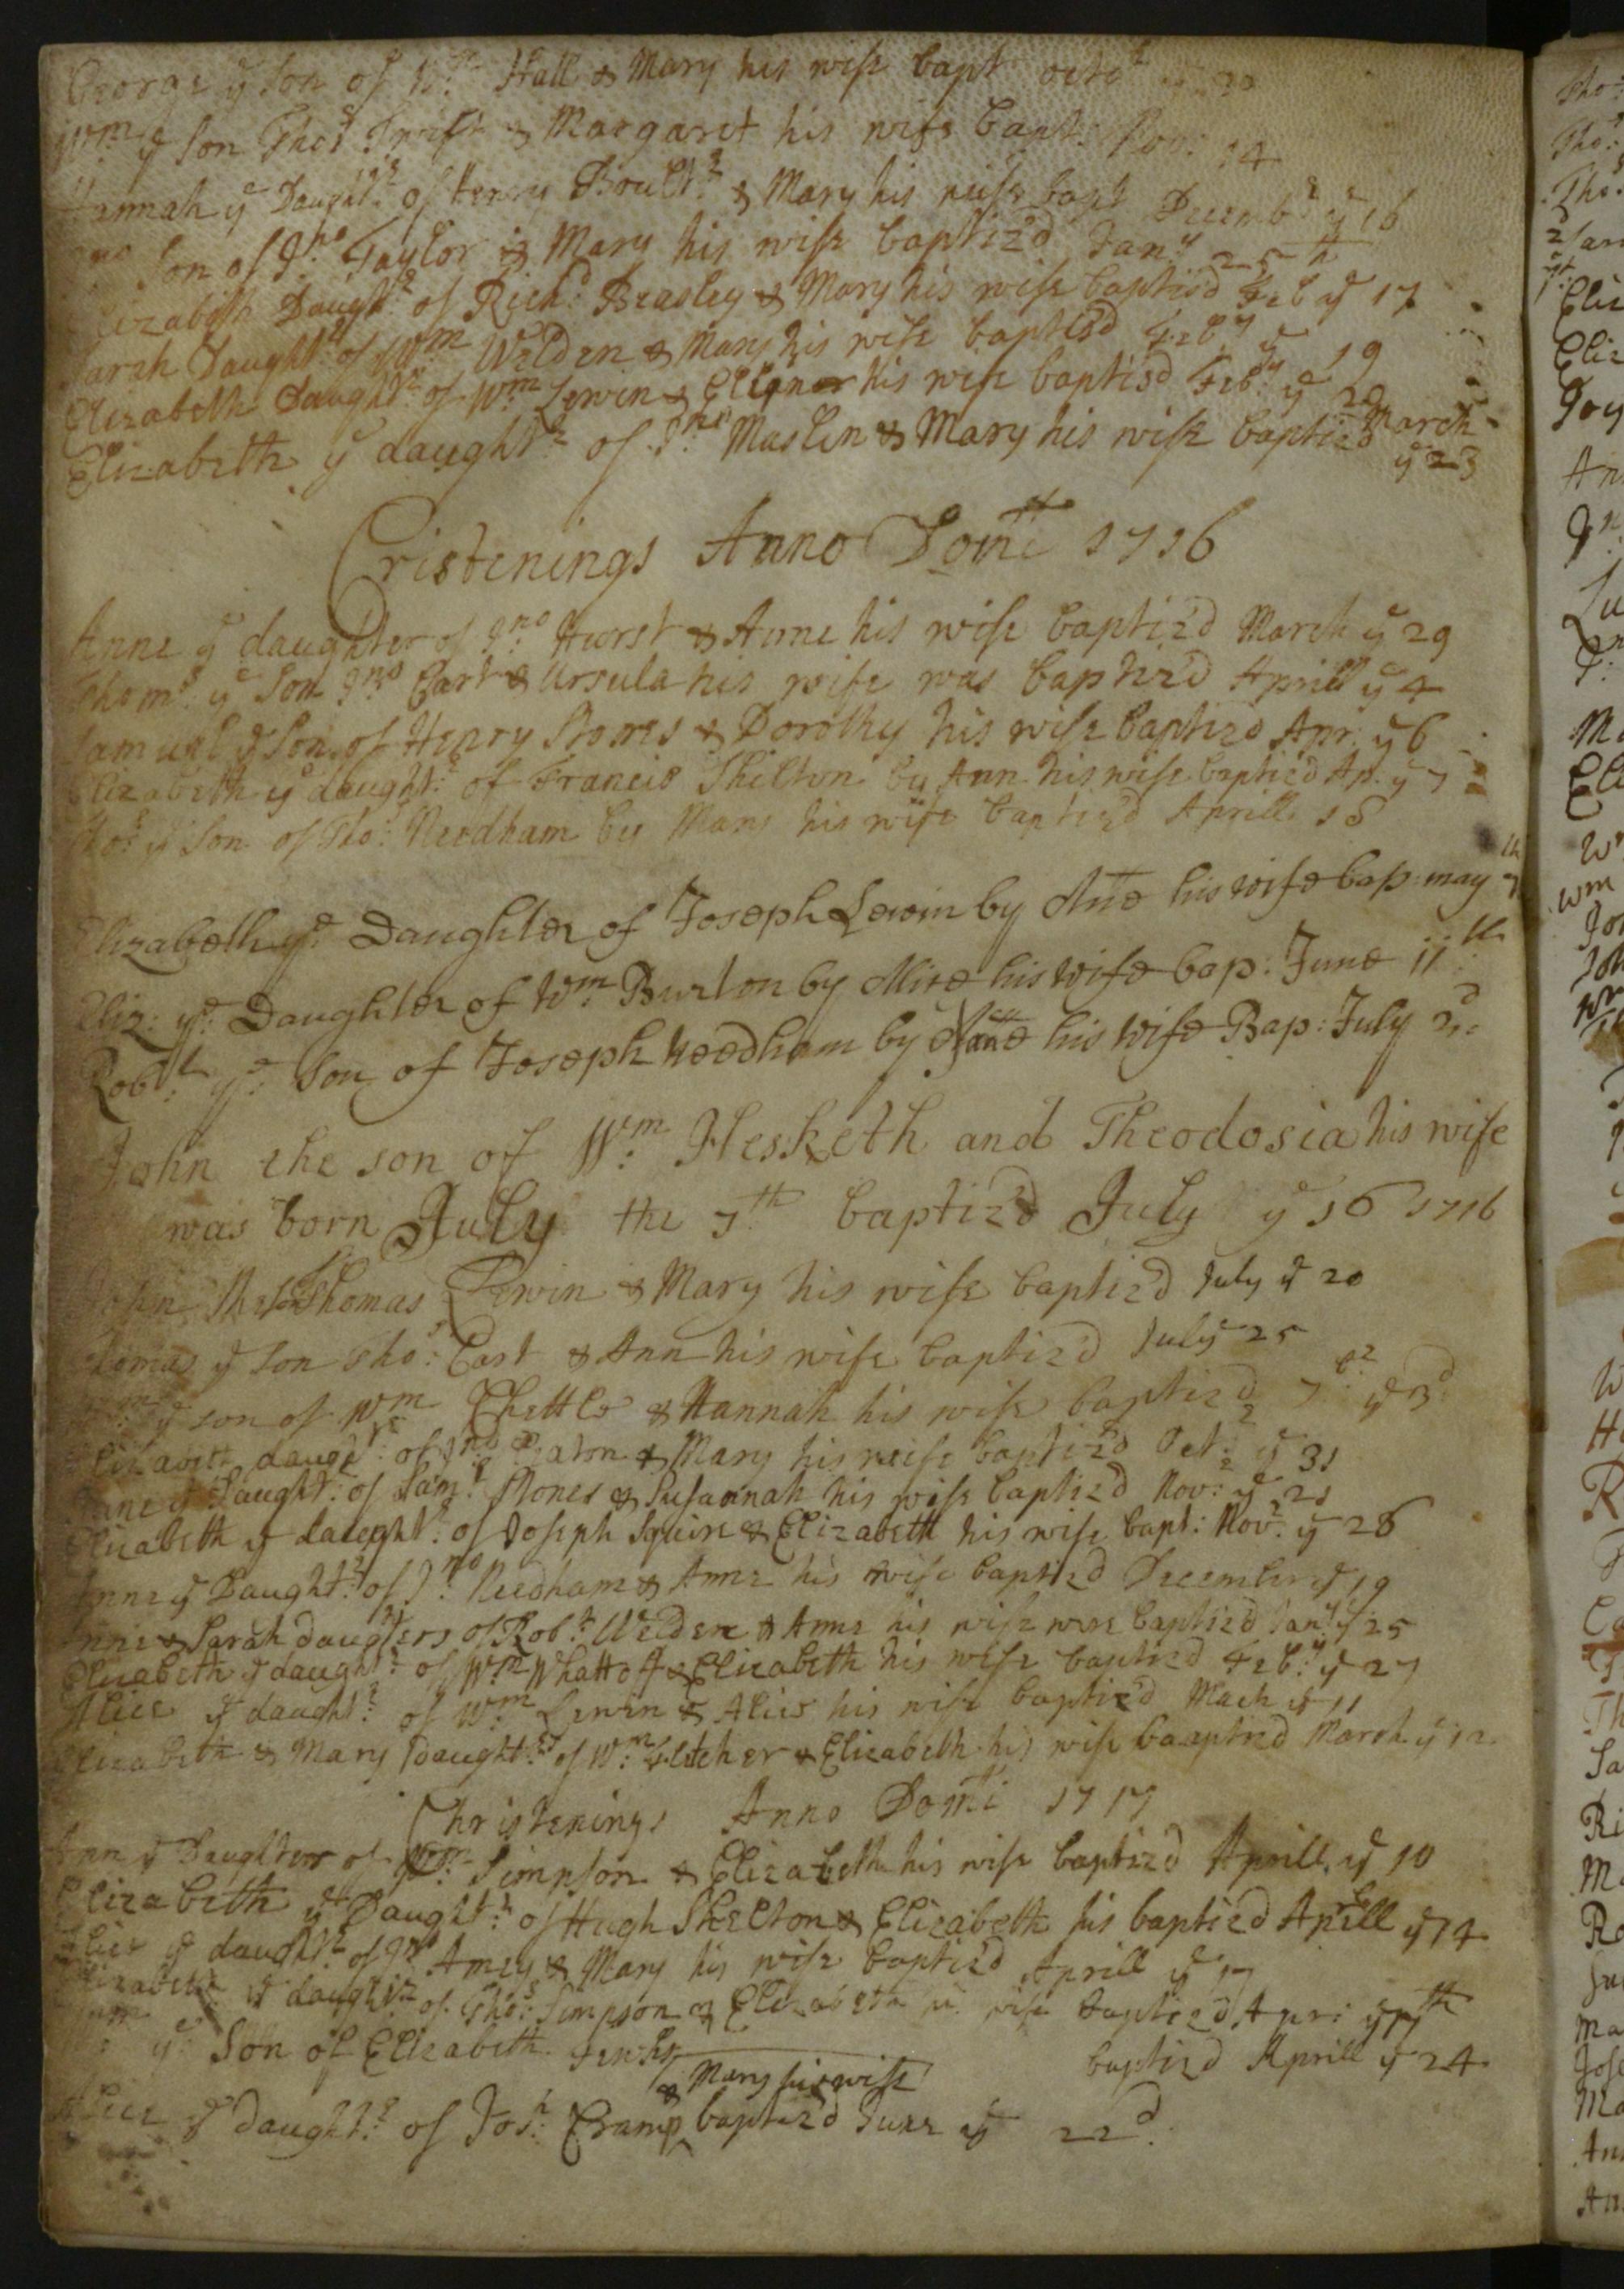 George ye Son of Wm Hall & Mary his wife bapt octo 30
Wm ye Son Thos Twist & Margaret his wife bapt: Nov: 14
Hannah ye Daughtr of Henry Boultr & Mary his wife bapt Decembr ye 16
Jno Son of Jno Taylor & Mary his wife baptiz'd Jany 25th
Elizabeth Daughtr of Richd Beasley & Mary his wife baptis'd Feb ye 17
Sarah Daughtr of Wm Welden & Mary his wife baptis'd Feby ye 19
Elizabeth Daughtr of Wm Lewin & Elignor his wife baptis'd Feby ye 20
Elizabeth ye daughtr of Jno Maslin & Mary his wife baptiz'd March ye 23
Cristenings Anno Domi 1716
Anne ye daughter of Jno Hurst & Anne his wife baptiz'd March ye 29
Thoms ye Son Jno Cart & Ursula his wife was baptiz'd Aprill ye 4
Samuel ye Son of Henry Stones & Dorothy his wife baptiz'd Apr: ye 6
Elizabeth ye daughtr of Francis Shilton by Ann his wife baptiz'd Ap. ye 7
Thos ye Son of Tho: Needham by Mary his wife baptiz'd Aprill 18
Elizabeth ye Daughter of Joseph Lewin by Ane his wife bap: may 7th
Eliz: ye Daughter of Wm Burton by Alice his wife bap: June 11th
Robt: ye Son of Joseph Needham by his wife Bap: July 2d
John the son of Wm Hesketh and Theodosia his wife
was born July the 7th baptiz'd July ye 16 1716
John the son Thomas Lewin & Mary his wife baptiz'd July ye 20
Thomas ye Son Tho: Cart & Ann his wife baptiz'd July 25
Wm ye son of Wm Chettle & Hannah his wife baptiz'd 7br ye 3d
Elizabeth daughtr of Jno & Mary his wife baptiz'd Octr ye 31
Jane ye Daught: of Saml Stones & Susannah his wife baptiz'd Novr ye 21
Elizabeth ye daughtr of Joseph Squire & Elizabeth his wife bapt: Novr ye 28
Anne ye Daughtr of Jno Needham & Anne his wife baptiz'd December ye 19
Anne & Sarah daughters of Robt Welden & Anne his wife were baptiz'd Jany ye 25
Elizabeth ye daughtr of Wm Whattoff & Elizabeth his wife baptiz'd Feby ye 27
Alice ye daughtr of Wm Lewen & Alice his wife baptiz'd Mach ye 11
Elizabeth & Mary Daughtrs of Wm Fletcher & Elizabeth his wife baaptiz'd March ye 12
Christenings Anno Domi 1717
Ann ye Daughter of Wm Simpson & Elizabeth his wife baptiz'd Aprill ye 10
Elizabeth ye Daughtr of Hugh Skelton & Elizabeth his baptiz'd Aprill ye 14
Alice ye daughtr of Jno Amey & Mary his wife baptiz'd Aprill ye 17
Elizabeth ye daughtr of Thos Simpson & Elizabeth his wife baptiz'd Apr: ye 17th
Wm ye Son of Elizabeth baptiz'd Aprill ye 24
& Mary his wife
Alice ye daughtr of Josh Cramp baptiz'd June ye 22d